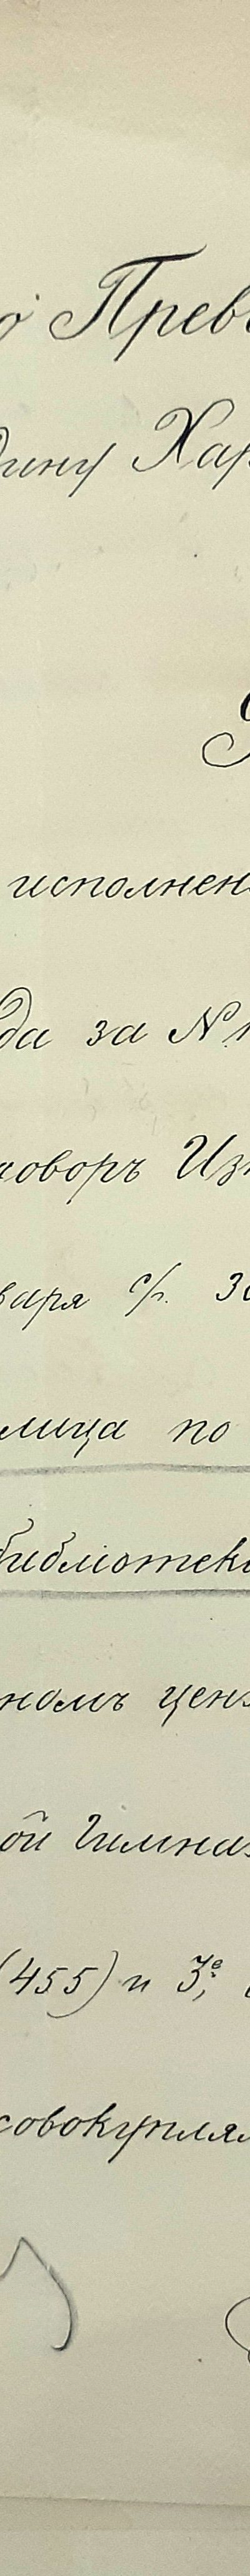 о Прев
дину Хар
исполнен
да за №
говоръ Из
варя с/г. 30
лица по
библіотек
номъ ценз
ой Гимназ
(455) и 3е,
совокуплял